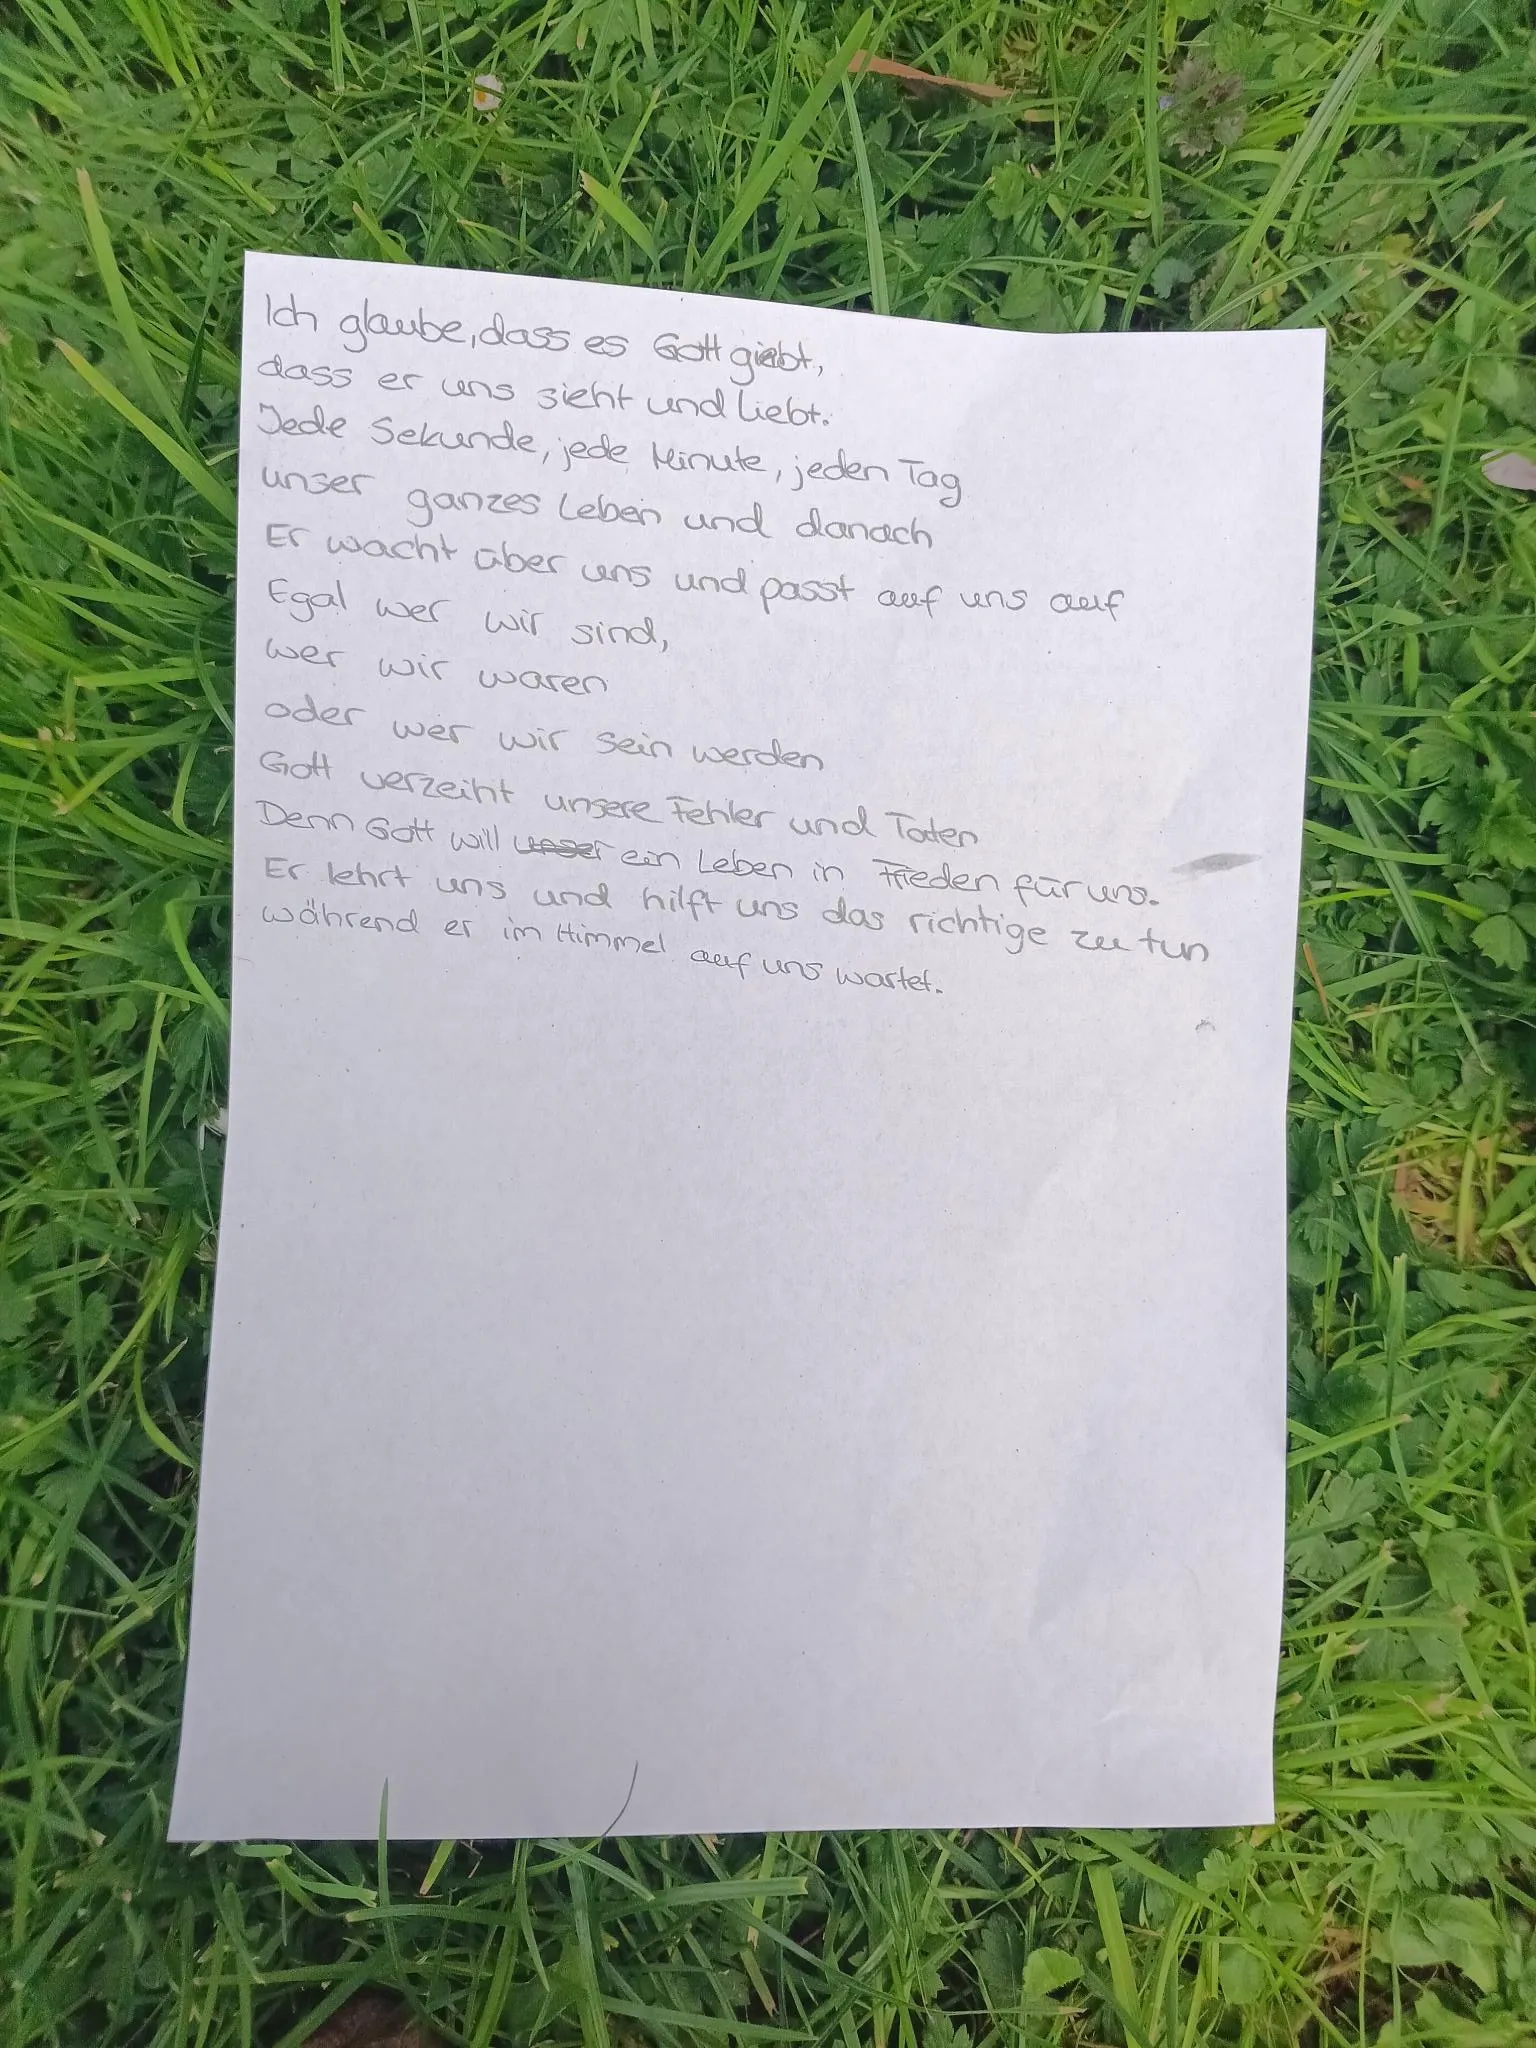 Ich glaube, dass es Gott giebt,
dass er uns sieht und liebt.
Jede Sekunde, jede Minute, jeden Tag
unser ganzes Leben und danach
Er wacht über uns und passt auf uns auf
Egal wer wir sind,
wer wir waren
oder wer wir sein werden
Gott verzeiht unsere Fehler und Taten
Denn Gott will ein Leben in Frieden für uns.
Er lehrt uns und hilft uns das richtige zu tun
während er im Himmel auf uns wartet.